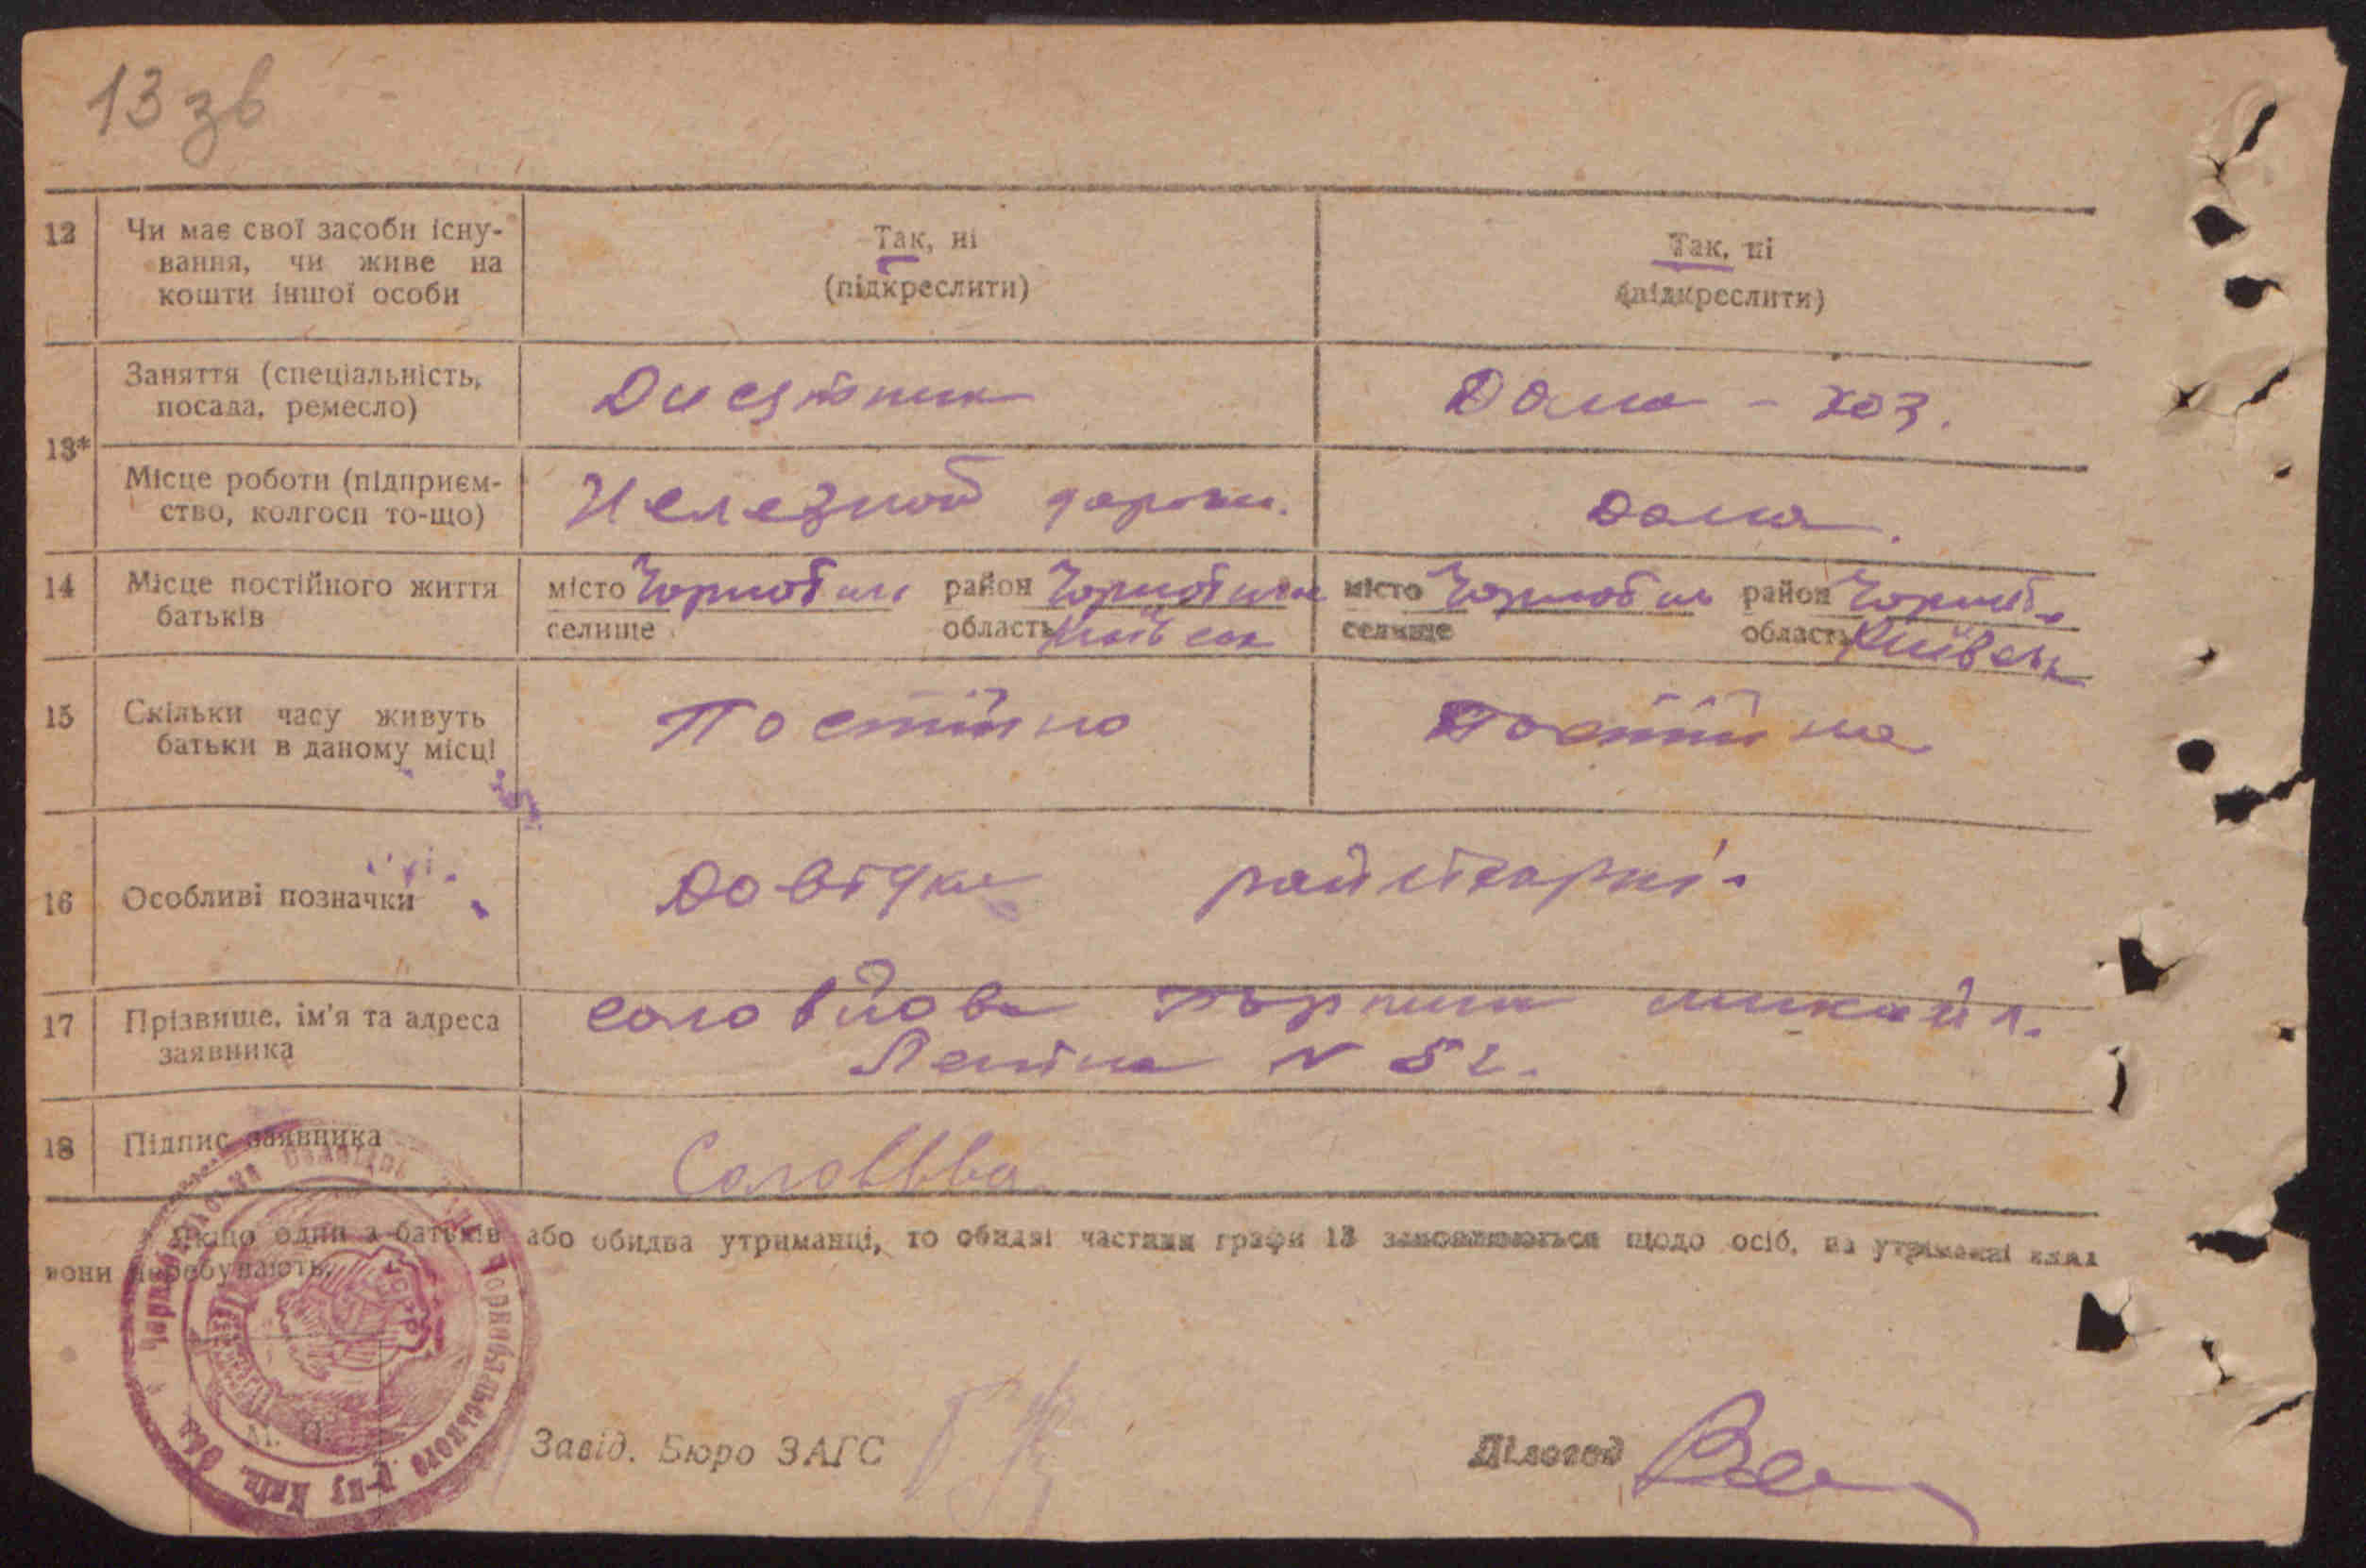 13 зв
12 Чи має свої засоби існу- Так, ні Так, ні
вання, чи живе на (підкреслити) (підкреслити)
кошти іншої особи
Заняття (спеціальність, Дома - хоз.
посада, ремесло)
13*
Місце роботи (підприєм- Железной дороги. дома.
ство, колгосп то-що)
14 Місце постійного життя місто Чорнобиль район Чорнобильс місто Чорнобиль район Чорноб.
батьків селище область Київськ селище область Київськ
15 Скільки часу живуть Постійно Постійно
батьки в даному місці
16 Особливі позначки Довідка райлікарні.
17 Прізвище, ім'я та адреса Соловйова михайл.
заявника Леніна N 52.
18 Підпис заявника
Якщо один з батьків або обидва утриманці, то обидві частини графи 13 заповнюються щодо осіб, на утриманні яких
вони перебувають.
Чорнобильського Р-ну Київ. Обл.
УСРР
М. П.
Завід. Бюро ЗАГС Діловод